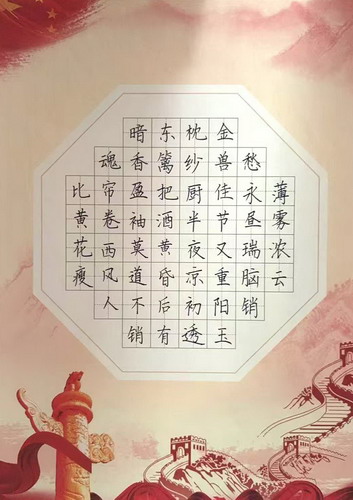 薄雾浓云
愁永昼瑞脑销
金兽佳节又重阳玉
枕纱厨半夜凉初透
东篱把酒黄昏后有
暗香盈袖莫道不销
魂帘卷西风人
比黄花瘦